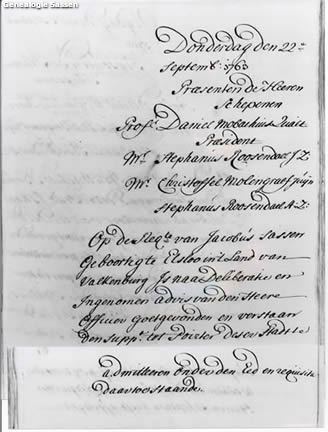 Genealogie Sassen
Donderdag den 22e
Septemb: 1763
Præsenten de Heeren
Schepenen
Profr. Daniel Mobachius Quaet
Præsident
Mr. Stephanus Roosendael J.Z.
Mr. Christoffel Molengraef puijn
Stephanus Roosendael A.Z.
Op de Reqte. van Jacobus Sassen
Geboortigh te Elsloo int Land van
Valkenburg Is na Deliberatie en
Ingenomen advis van den Heere
Officier Goetgevonden en verstaan
Den Suppt. tot Poirter deser Stadt te
admitteren onder den Eed en requisita
daar toe staande